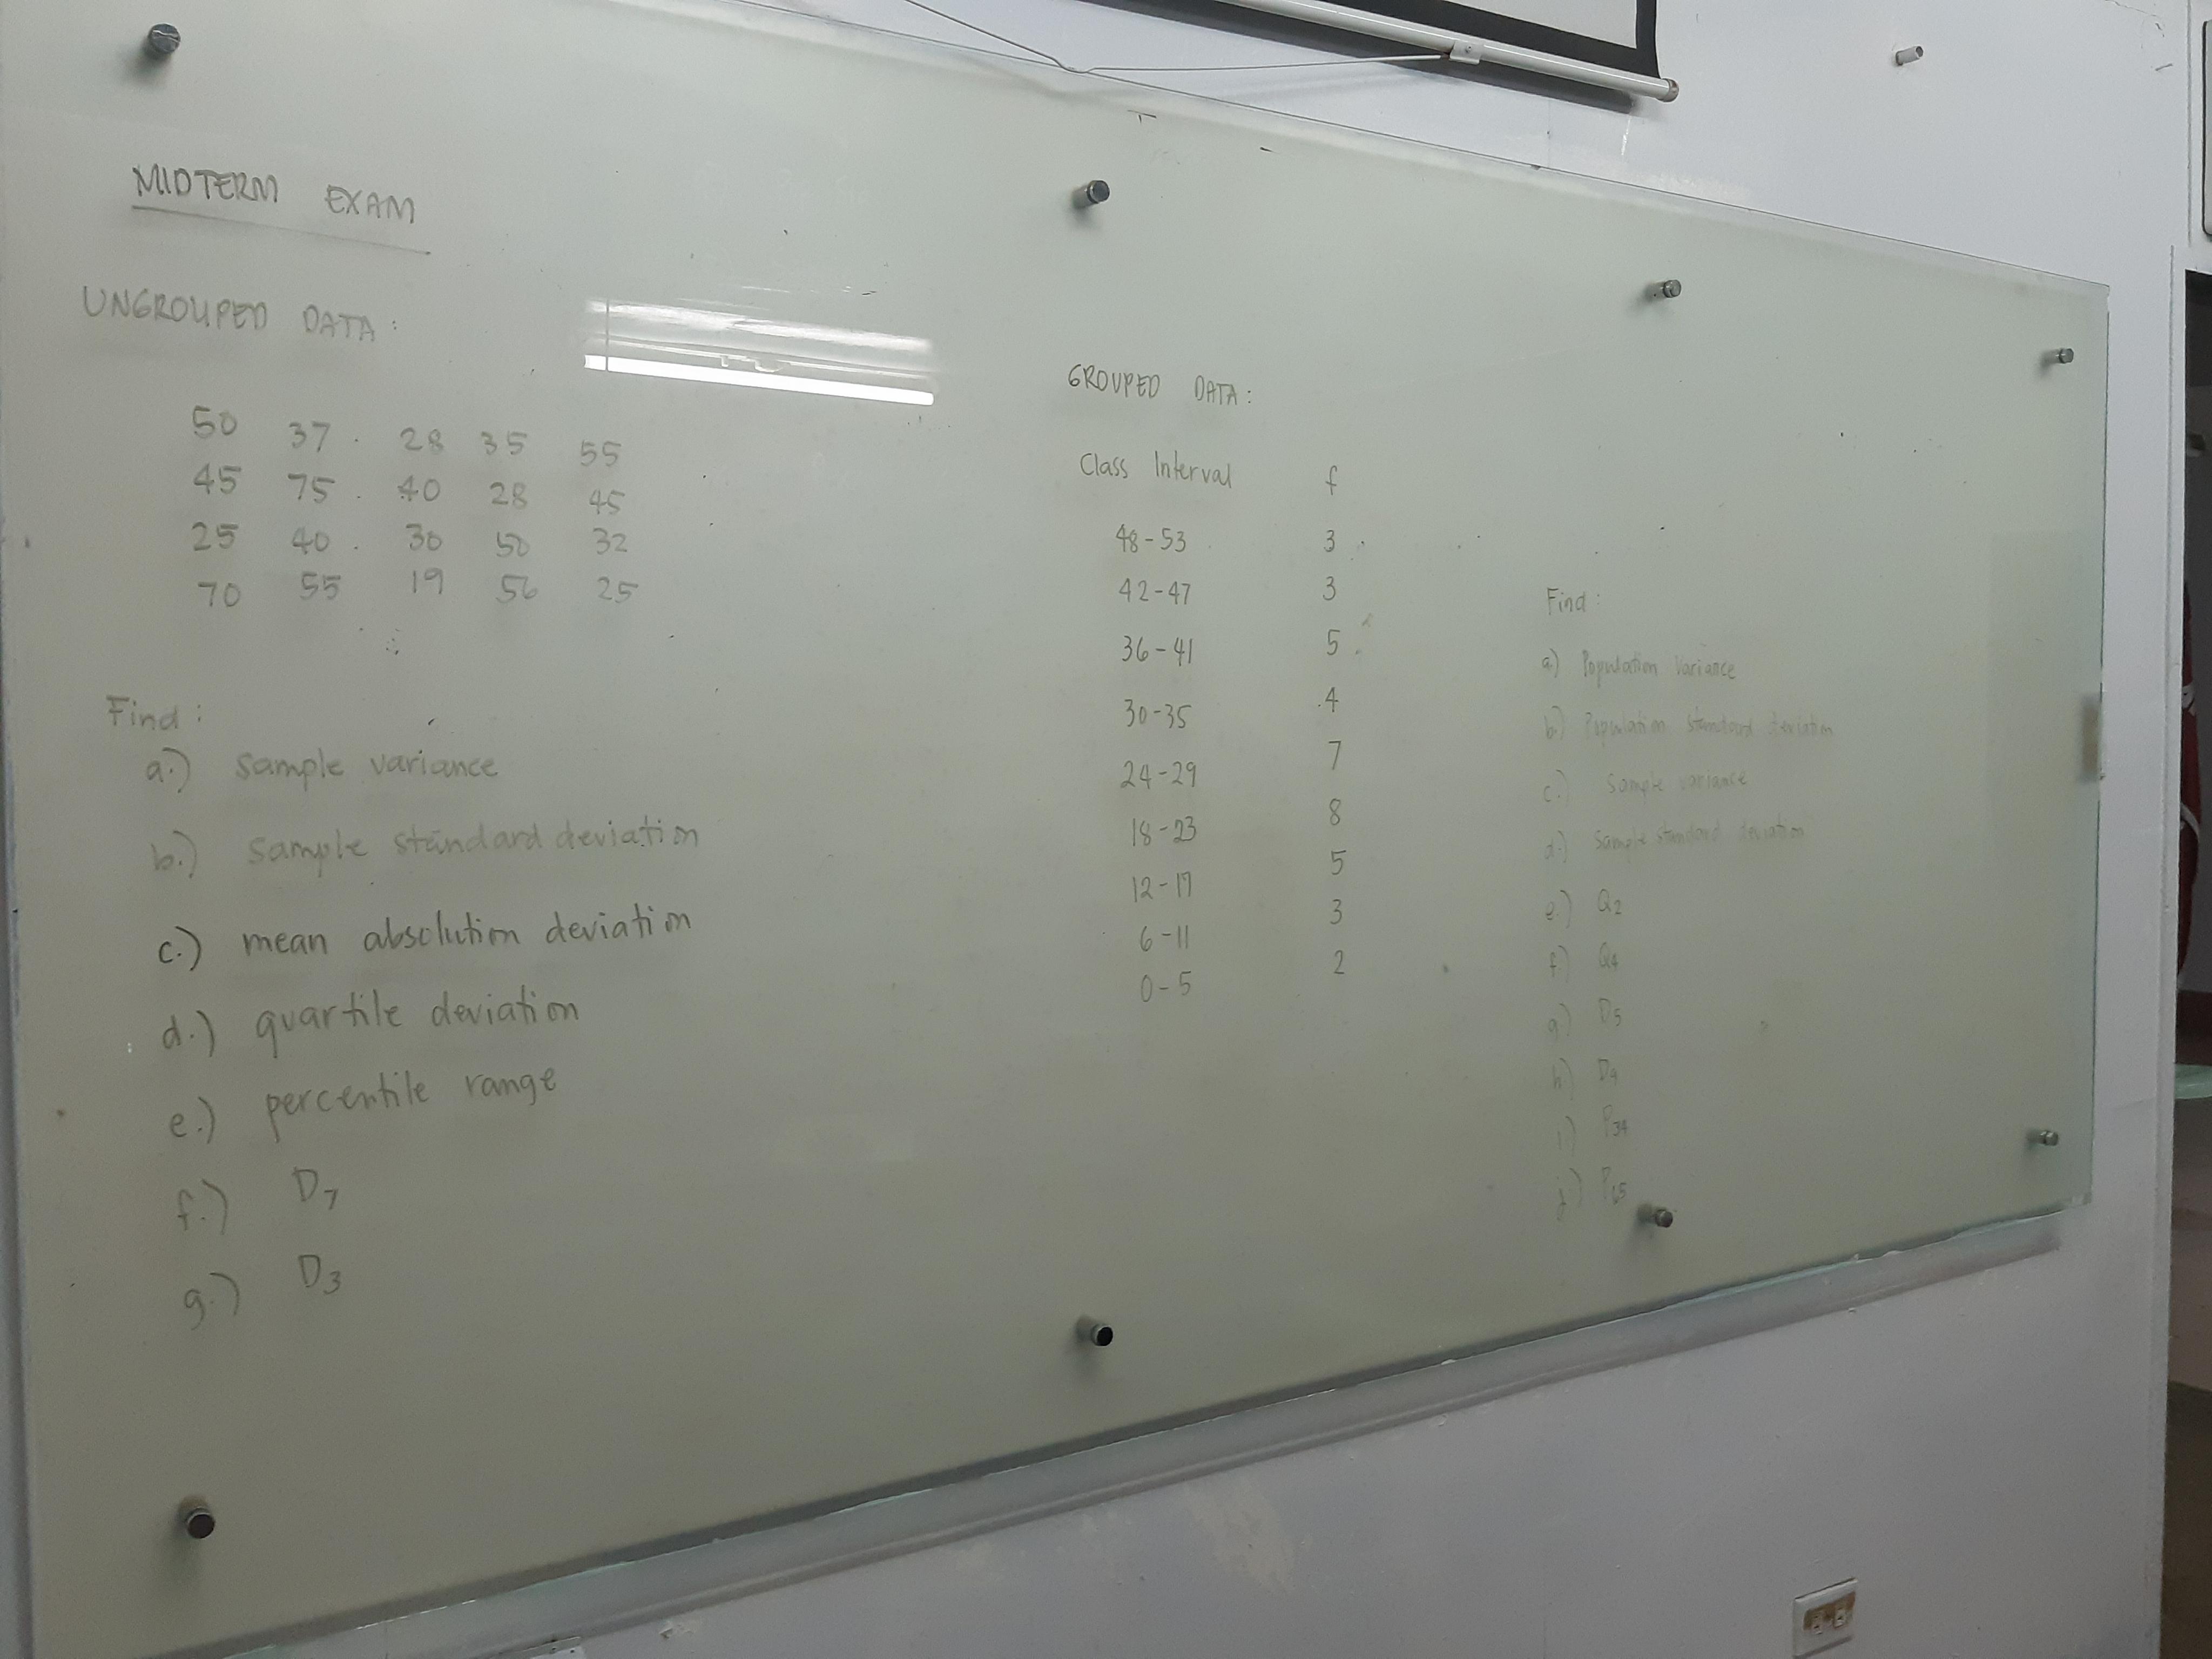 MIDTERM EXAM
UNGROUPED DATA:
50 37 28 35 55
45 75 40 28 45
25 40 30 50 32
70 55 19 56 25
Find:
a.) sample variance
b.) sample standard deviation
c.) mean absolution deviation
d.) quartile deviation
e.) percentile range
f.) D7
g.) D3
GROUPED DATA:
Class Interval f
48-53 3
42-47 3
36-41 5
30-35 4
24-29 7
18-23 8
12-17 5
6-11 3
0-5 2
Find:
a.) Population Variance
b.) Population standard deviation
c.) Sample variance
d.) Sample standard deviation
e.) Q2
f.) Q4
g.) D5
h.)
i.) P34
j.) P65